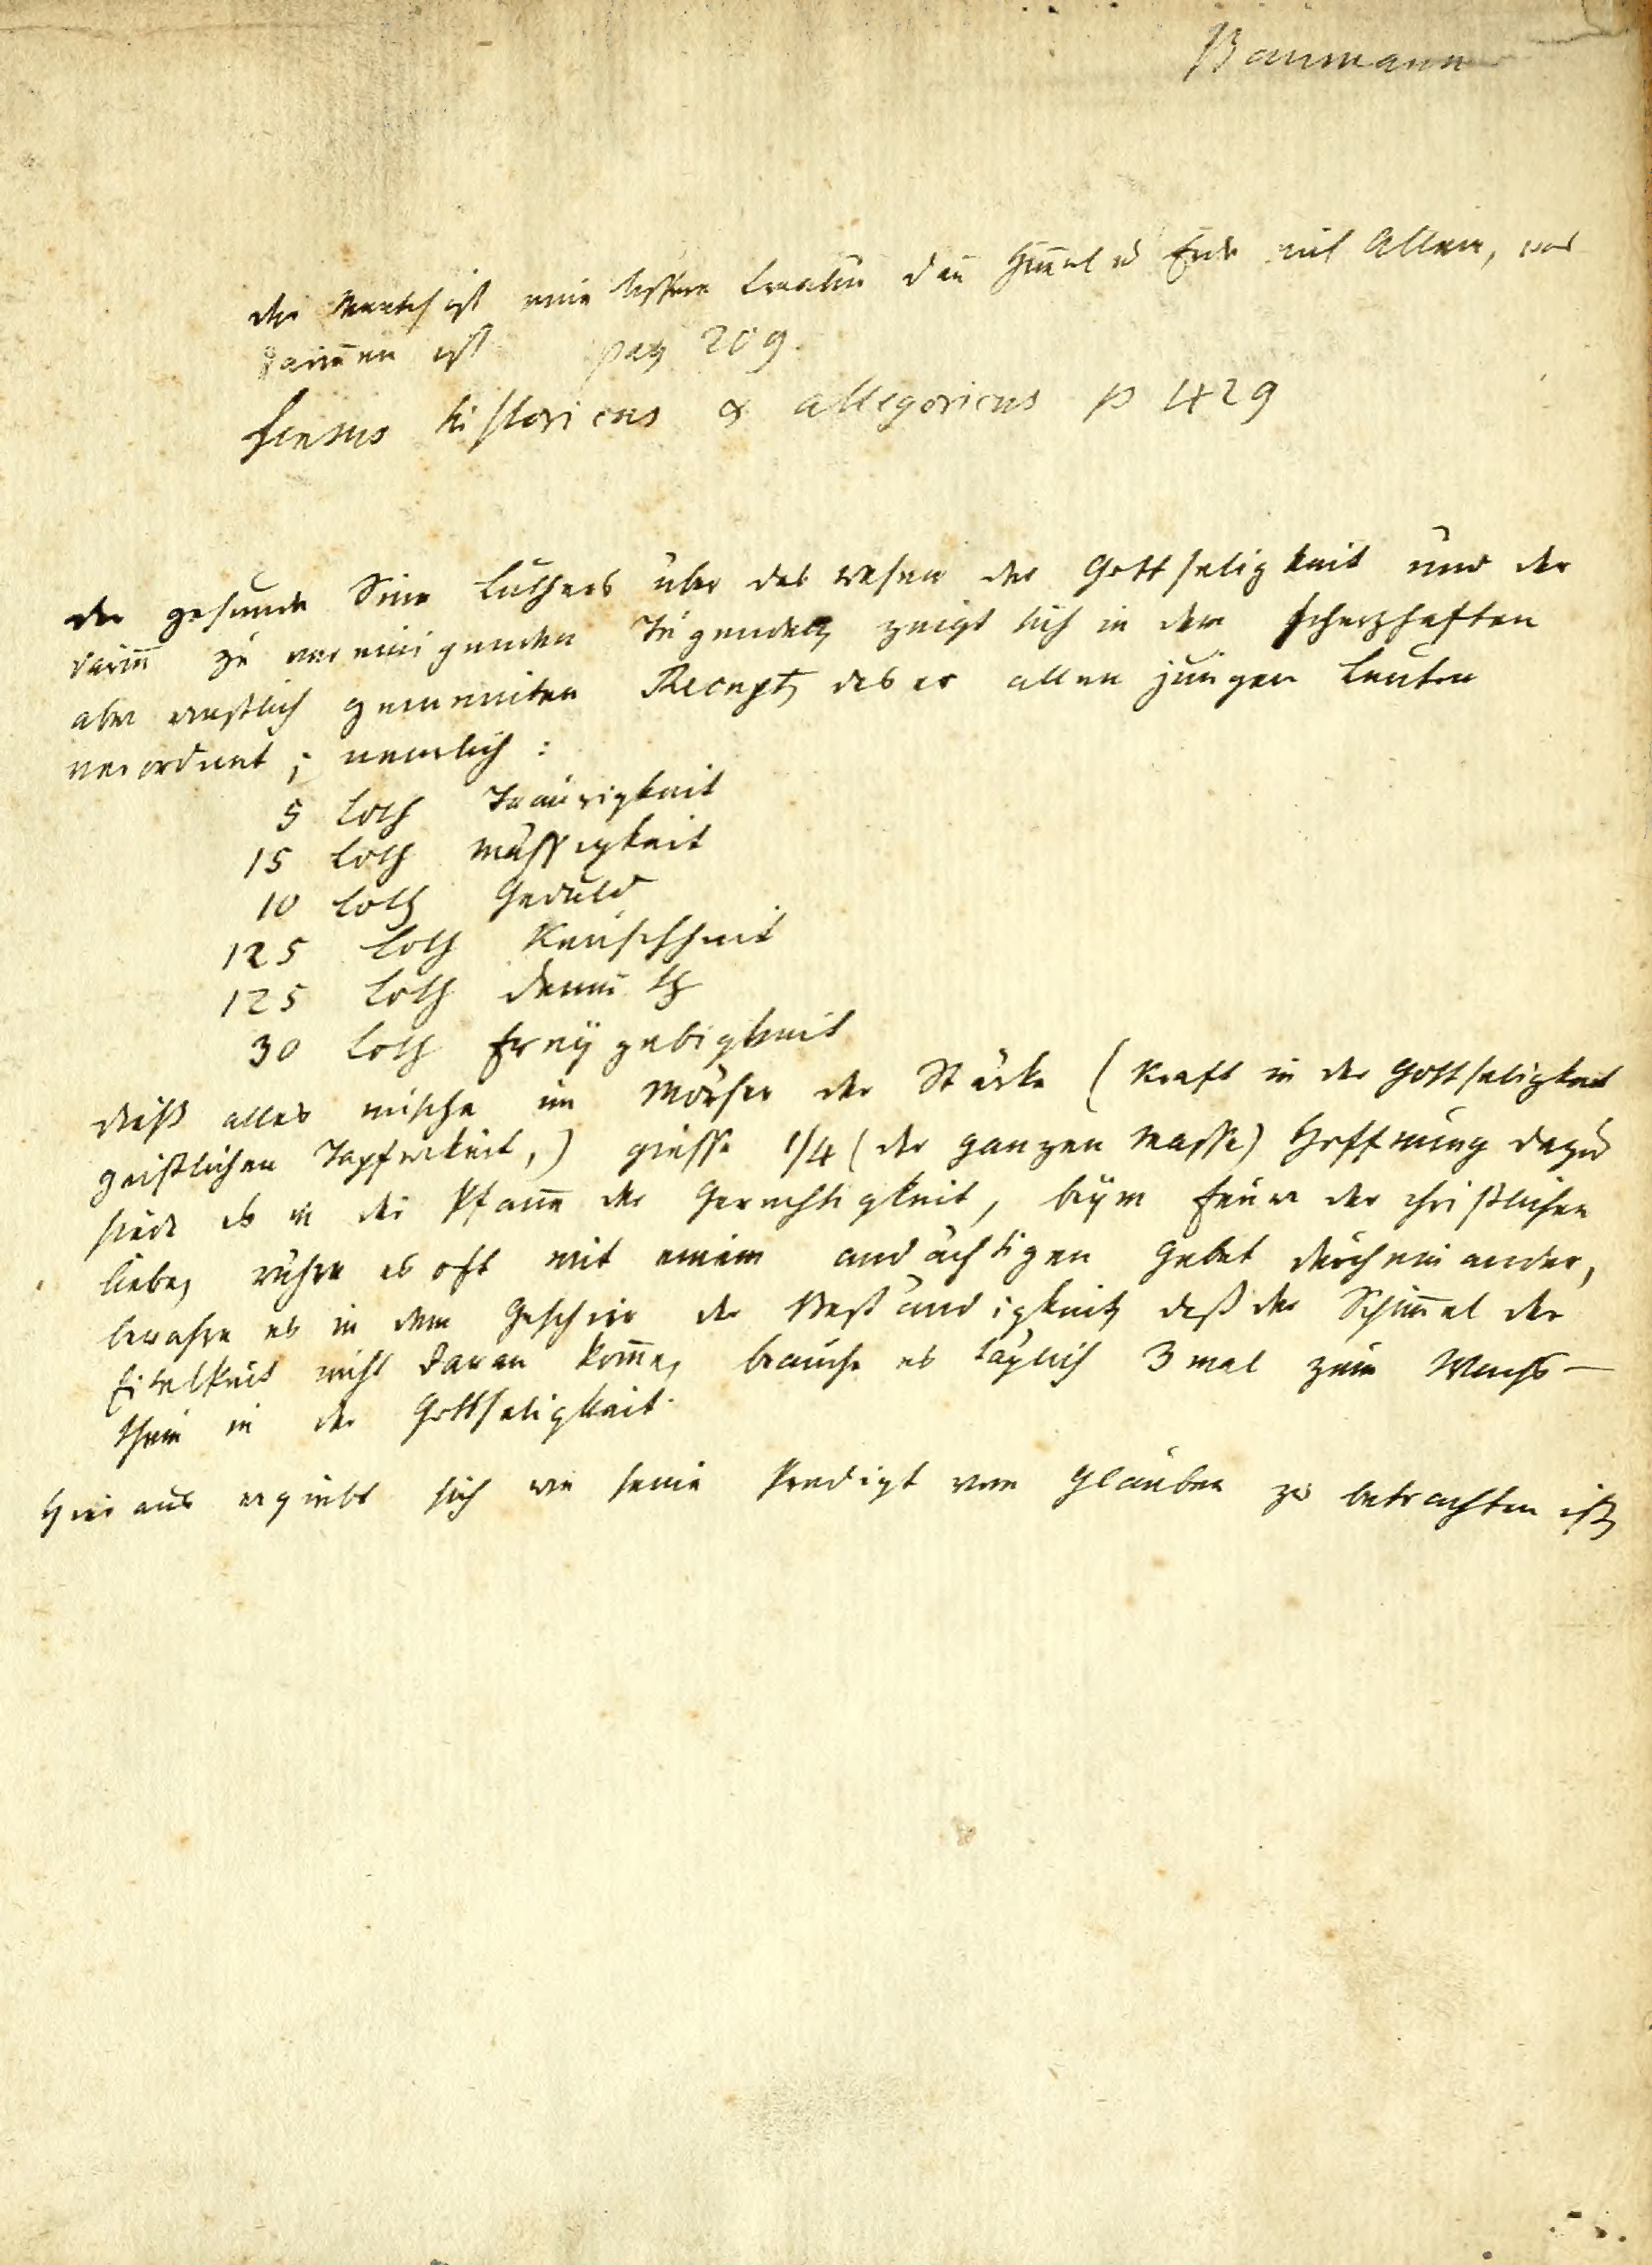 Baumann
der Mensch ist eine bessere Creatur dañ Him̄el u Erde mit Allem, was
darin̄en ist pag 209.
sensus historicus & allegoricus p 429
der gesunde Sinn Luthers über das wesen der Gottseligkeit und der
darin̄ zu vereinigenden Tugenden, zeigt sich in dem scherzhaften
aber ernstlich gemeinten Recept, das er allen jungen Leuten
verordnet; nemlich:
5 Loth Traurigkeit
15 Loth Mässigkeit
10 Loth Geduld
125 Loth Keuschheit
125 Loth Demuth
30 Loth Freÿgebigkeit
dieß alles mische im Mörser der Stärke (Kraft in der Gottseligkeit
geistlichen Tapferkeit,) giesse 1/4 (der ganzen Masse) Hoffnung dazu
siede es in der Pfan̄e der Gerechtigkeit, beÿm Feuer der christlichen
Liebe, rühre es oft mit einem andächtigen Gebet durcheinander,
bewahre es in dem Geschirr der Beständigkeit, daß der Schim̄el der
Eitelkeit nicht daran kom̄e, brauche es täglich 3 mal zum Wachs-
thum in der Gottseligkeit.
Hieraus ergiebt sich wie seine Predigt vom Glauben zu betrachten ist,